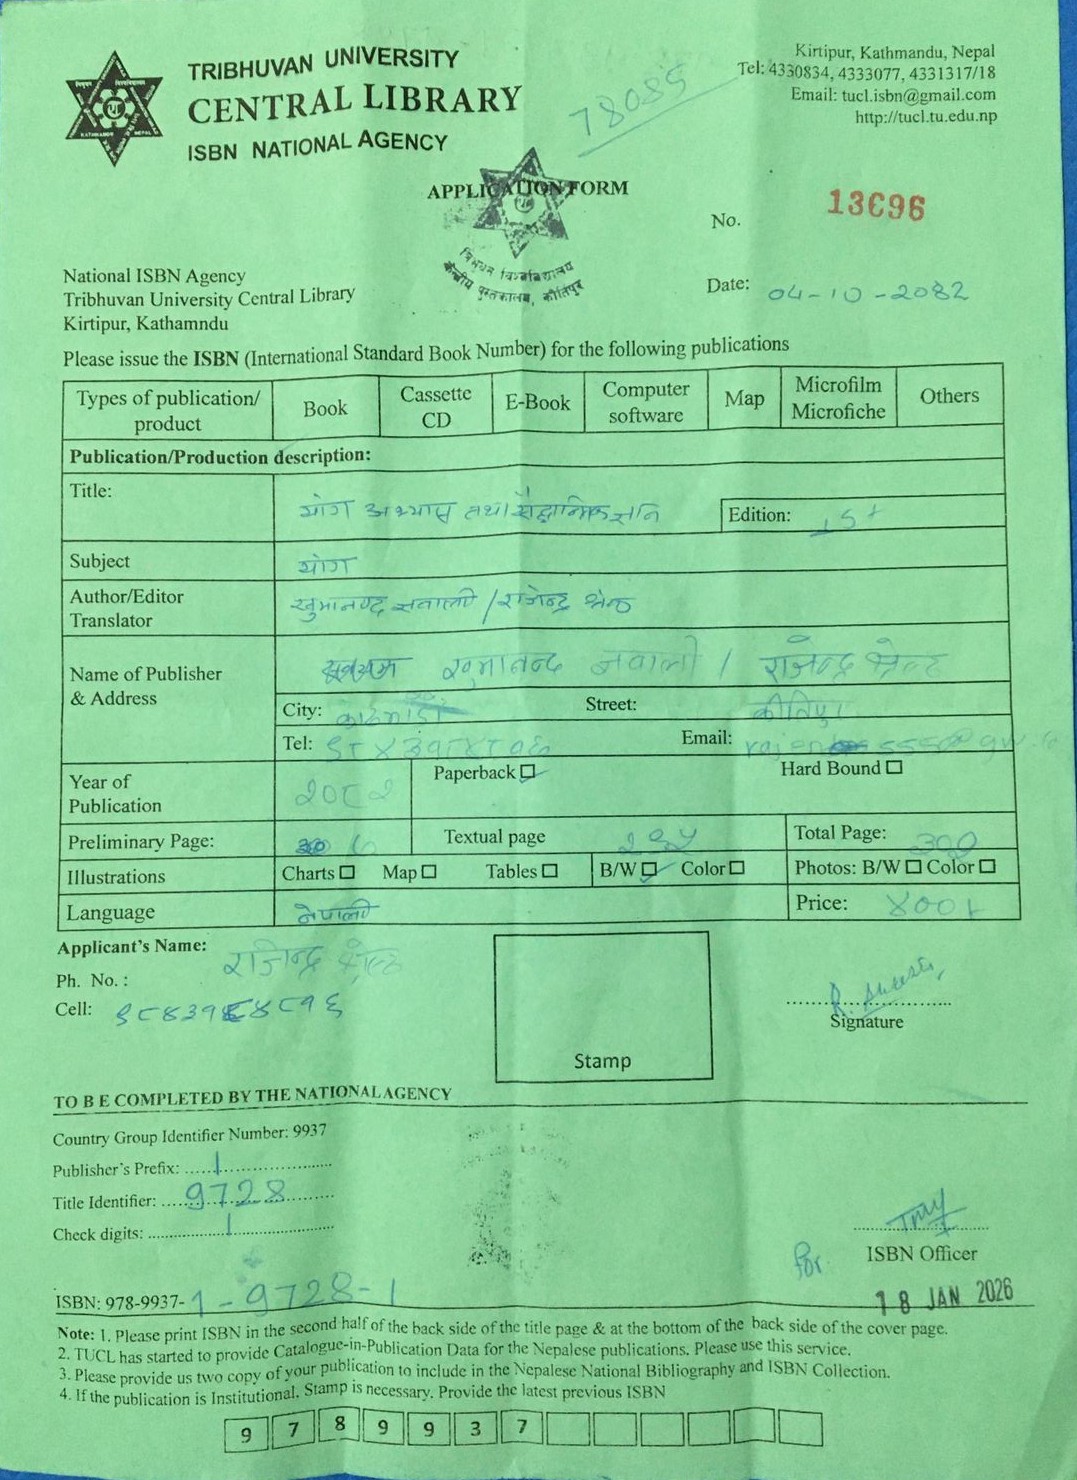 TRIBHUVAN UNIVERSITY
CENTRAL LIBRARY
ISBN NATIONAL AGENCY
78085
Kirtipur, Kathmandu, Nepal
Tel: 4330834, 4333077, 4331317/18
Email: tucl.isbn@gmail.com
http://tucl.tu.edu.np
APPLICATION FORM
त्रिभुवन विश्वविद्यालय
केन्द्रीय पुस्तकालय, कीर्तिपुर
No. 13096
National ISBN Agency
Tribhuvan University Central Library
Kirtipur, Kathamndu
Date: 04-10-2082
Please issue the ISBN (International Standard Book Number) for the following publications
Types of publication/ product Book Cassette CD E-Book Computer software Map Microfilm Microfiche Others
Publication/Production description:
Title: योग अभ्यास तथा Edition: 1st
Subject योग
Author/Editor Translator राजेन्द्र श्रेष्ठ
Name of Publisher & Address खुमानन्द नवाली / राजेन्द्र श्रेष्ठ
City: काठमाडौं Street: कीर्तिपुर
Tel: Email:
Year of Publication २०८२ Paperback Hard Bound
Preliminary Page: Textual page Total Page: 300
Illustrations Charts Map Tables B/W Color Photos: B/W Color
Language नेपाली Price: ४००।
Applicant's Name: राजेन्द्र श्रेष्ठ
Ph. No. :
Cell:
Stamp
Signature
TO B E COMPLETED BY THE NATIONAL AGENCY
Country Group Identifier Number: 9937
Publisher's Prefix: 1
Title Identifier: 9728
Check digits: 1
For ISBN Officer
ISBN: 978-9937-1-9728-1
18 JAN 2026
Note: 1. Please print ISBN in the second half of the back side of the title page & at the bottom of the back side of the cover page.
2. TUCL has started to provide Catalogue-in-Publication Data for the Nepalese publications. Please use this service.
3. Please provide us two copy of your publication to include in the Nepalese National Bibliography and ISBN Collection.
4. If the publication is Institutional. Stamp is necessary. Provide the latest previous ISBN
9 7 8 9 9 3 7